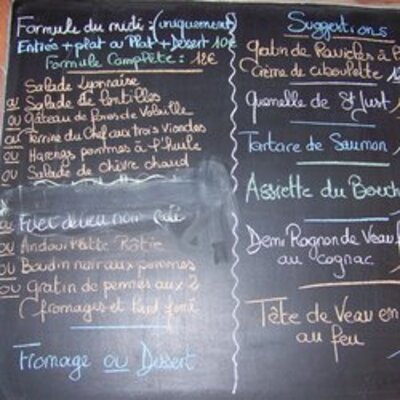 Formule du midi : (uniquement)
Entrée + plat ou Plat + Dessert 10€
Formule Complète : 12€
Salade Lyonnaise
ou Salade de lentilles
ou Gâteau de foies de Volaille
ou Terrine du Chef aux trois Viandes
ou Harengs pommes à l'huile
ou Salade de chèvre chaud
ou Filet de lieu noir
ou Andouillette Rôtie
ou Boudin noir aux pommes
ou gratin de pennes aux 2
fromages et
Fromage ou Dessert
Suggestions
gratin de Ravioles à l
Crème de ciboulette
Quenelle de St Just
Tartare de Saumon
Assiette du Bouch
Demi Rognon de Veau
au cognac
Tête de Veau en
au feu